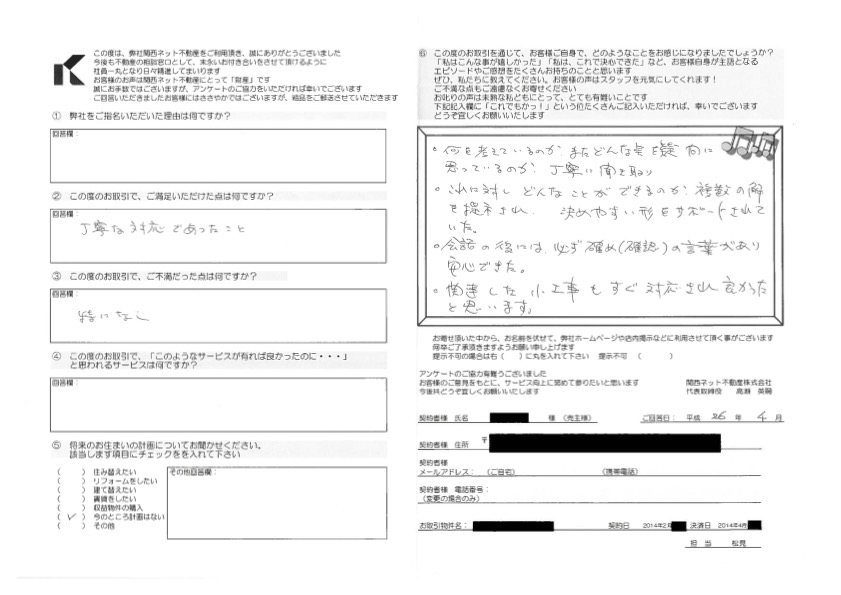 この度は、弊社関西ネット不動産をご利用頂き、誠にありがとうございました
今後も不動産の相談窓口として、末永いお付き合いをさせて頂けるように
社員一丸となり日々精進してまいります
お客様のお声は関西ネット不動産にとって「財産」です
誠にお手数ではございますが、アンケートのご協力をいただければ幸いでございます
ご回答いただきましたお客様にはささやかではございますが、粗品をご郵送させていただきます
① 弊社をご指名いただいた理由は何ですか?
回答欄:
② この度のお取引で、ご満足いただけた点は何ですか?
回答欄:
丁寧な対応であったこと
③ この度のお取引で、ご不満だった点は何ですか?
回答欄:
特になし
④ この度のお取引で、「このようなサービスが有れば良かったのに・・・」
と思われるサービスは何ですか?
回答欄:
⑤ 将来のお住まいの計画についてお聞かせください。
該当します項目にチェックをを入れて下さい
( ) 住み替えたい
( ) リフォームをしたい
( ) 建て替えたい
( ) 賃貸をしたい
( ) 収益物件の購入
( ✓ ) 今のところ計画はない
( ) その他
その他回答欄:
⑥ この度のお取引を通じて、お客様ご自身で、どのようなことをお感じになりましたでしょうか?
「私はこんな事が嬉しかった」「私は、これで決心できた」など、お客様自身が主語となる
エピソードやご感想をたくさんお持ちのことと思います
ぜひ、私たちに教えてください。お客様の声はスタッフを元気にしてくれます!
ご不満な点もご遠慮なくお寄せください
お叱りの声は未熟な私どもにとって、とても有難いことです
下記記入欄に「これでもかっ!」という位たくさんご記入いただければ、幸いでございます
どうぞ宜しくお願いいたします
・何を考えているのか またどんな点を疑問に
思っているのか 丁寧に聞き取り
・これに対し どんなことができるのか 複数の解
を提示され、決めやすい形をサポートされて
いた。
・会話の後には、必ず確め(確認)の言葉があり
安心できた。
・関連した小工事もすぐ対応され良かった
と思います。
お寄せ頂いた中から、お名前を伏せて、弊社ホームページや店内掲示などに利用させて頂く事がございます
何卒ご了承頂きますようお願い申し上げます
提示不可の場合は右( )に丸を入れて下さい 提示不可 ( )
アンケートのご協力有難うございました
お客様のご意見をもとに、サービス向上に努めて参りたいと思います
今後共どうぞ宜しくお願いいたします
関西ネット不動産株式会社
代表取締役 高瀬 英爾
契約者様 氏名 様 (売主様) ご回答日: 平成 26 年 4 月
契約者様 住所 〒
契約者様
メールアドレス: (ご自宅) (携帯電話)
契約者様 電話番号:
(変更の場合のみ)
お取引物件名: 契約日 2014年2月 決済日 2014年4月
担 当 松見